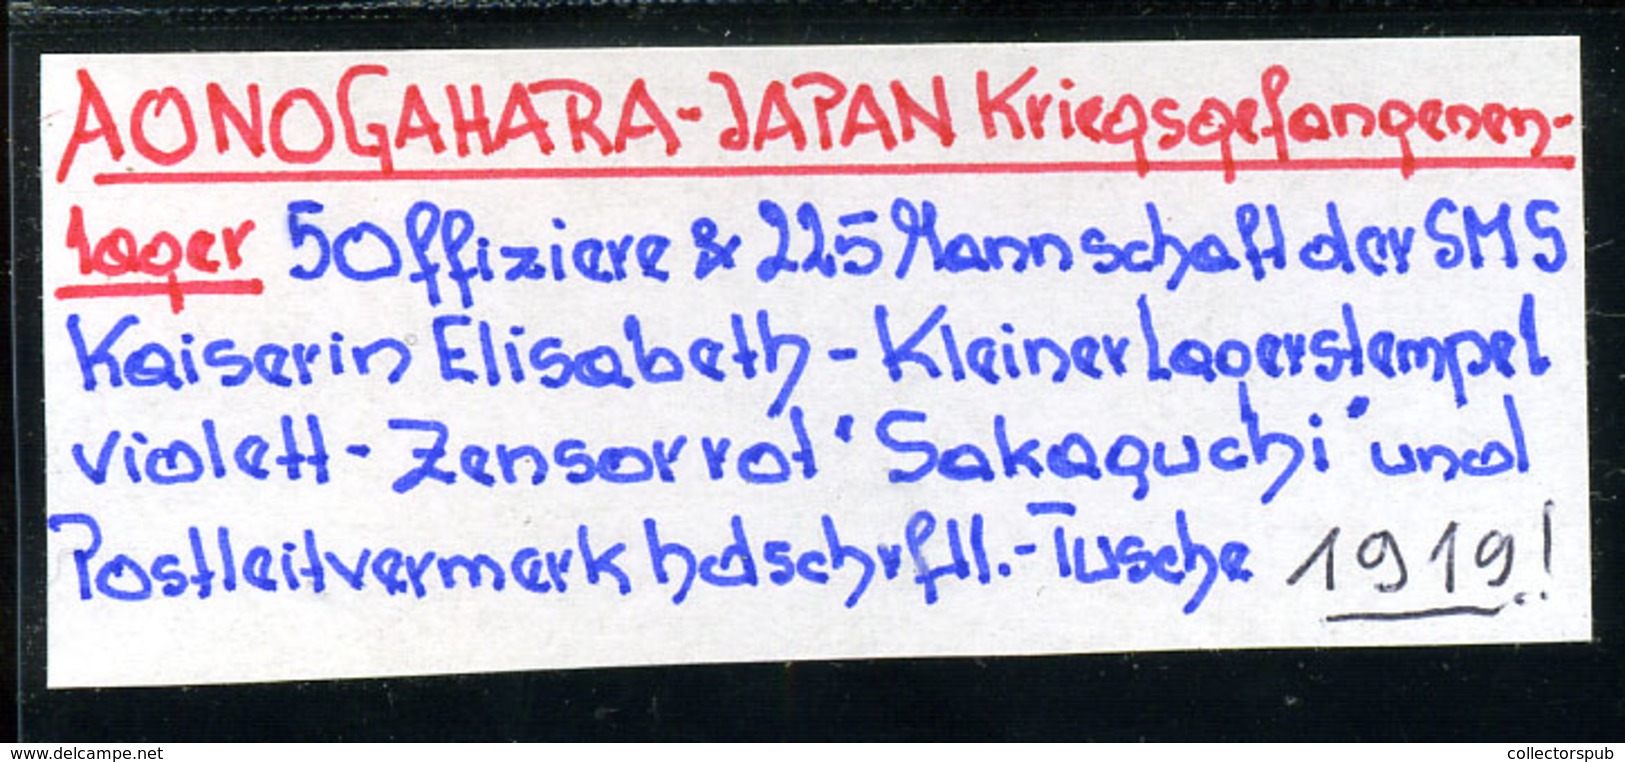 AONOGAHARA-JAPAN Kriegsgefangenen-
lager 5 Offiziere & 225 Mannschaft der SMS
Kaiserin Elisabeth - Kleiner Lagerstempel
violett - Zensor rot "Sakaguchi" und
Postleitvermerk hdschrftl. - Tusche 1919!
www.delcampe.net
collectorspub